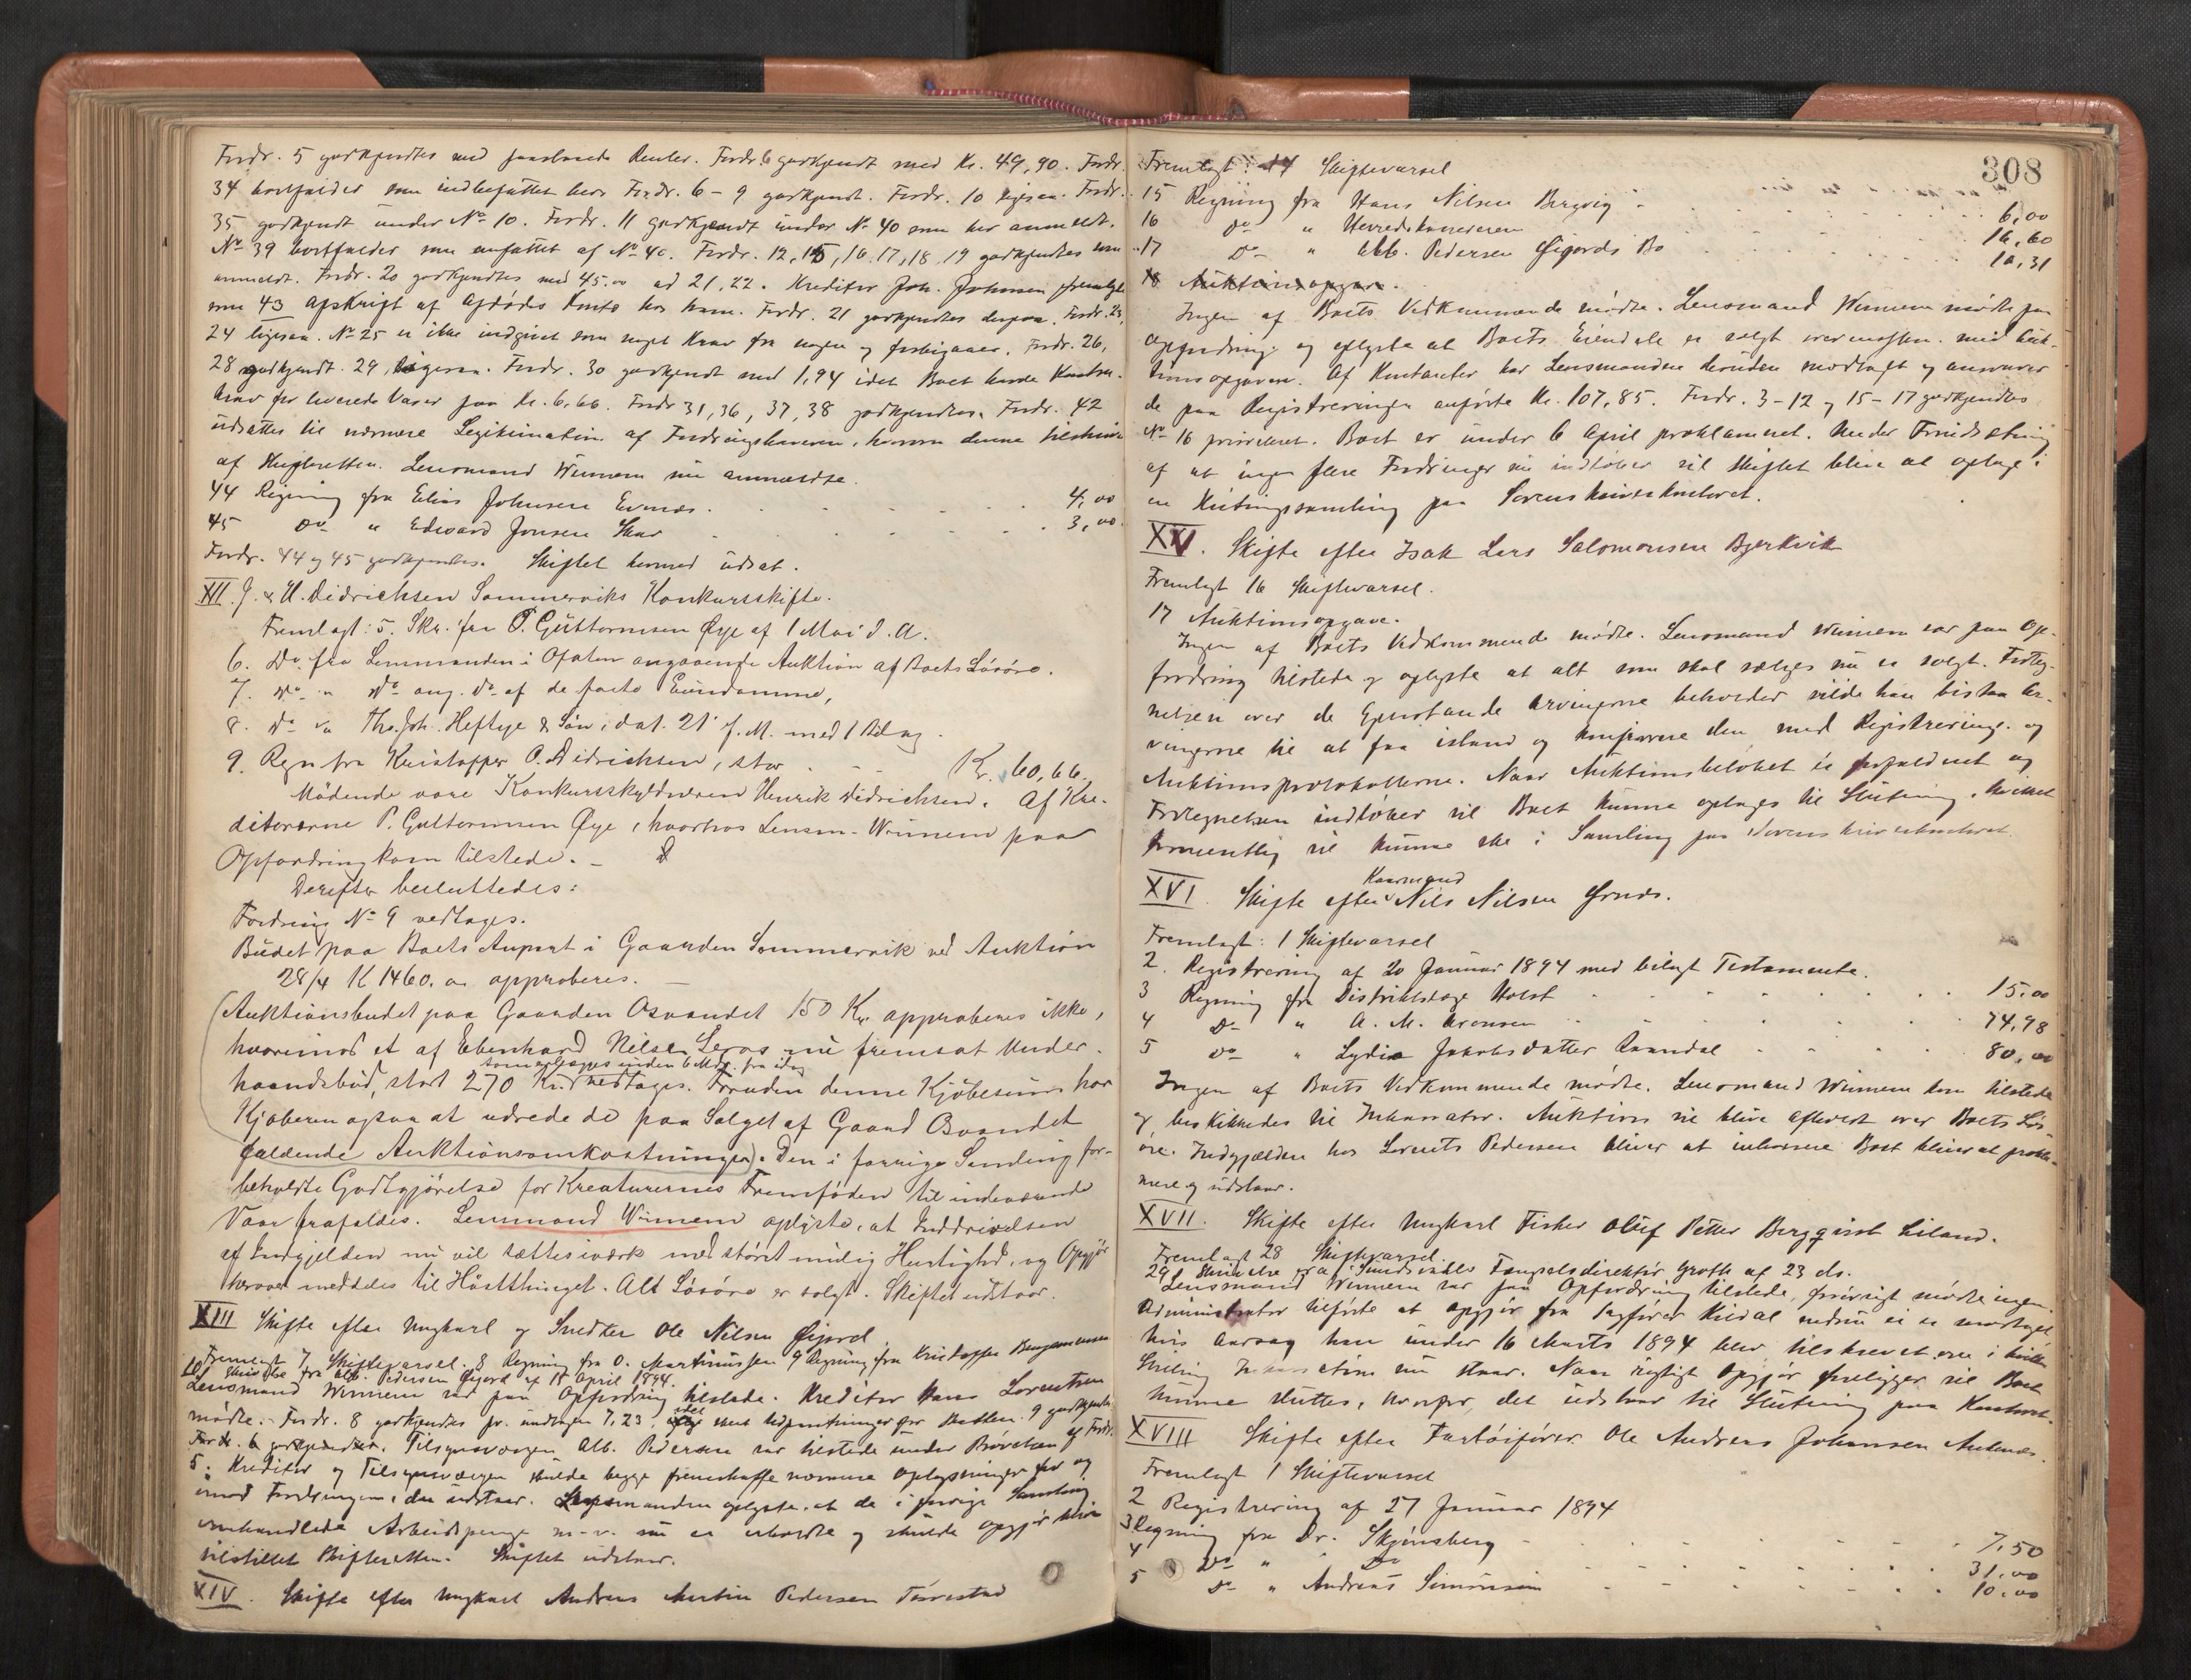 Fordr. 5 godkjendtes med paaløbende Renter. Fordr. 6 godkjendt med Kr. 49,90. Fordr.
34 bortfalder som indbefattet heri Fordr. 6 - 9 godkjendt. Fordr. 10 ligesaa. Fordr.
35 godkjendt under No 10. Fordr. 11 godkjendt under No 40 som her anmeldt.
No 39 bortfalder som omfattet af No 40. Fordr. 12, 15, 16, 17, 18, 19 godkjendtes som
anmeldt. Fordr. 20 godkjendtes med 45.00 ad 21, 22. Kreditor Joh. Johnsen fremlagde
som 43 Afskrift af Afdødes Konto hos ham. Fordr. 21 godkjendtes derpaa. Fordr. 23,
24 ligesaa. No 25 er ikke indgivet som noget Krav fra nogen og forbigaaes. Fordr. 26,
28 godkjendt. 29, ligesaa. Fordr. 30 godkjendt med 1,94 idet Boet havde Kontra-
krav for leverede Varer paa Kr. 6.66. Fordr 31, 36, 37, 38 godkjendtes. Fordr. 42
udsættes til nærmere Legitimation af Fordringshaveren, hvorom denne tilskrives
af Skifteretten. Lensmand Winnem nu anmeldte.
44 Regning fra Elias Johnsen Evenes . 4,00
45 Do " Edward Jonsen Skar . 3,00.
Fordr. 44 og 45 godkjendtes. Skiftet hermed udsat.
XII. J. & H. Didrichsen Sommerviks Konkursskifte.
Fremlagt: 5. Skr. fra P. Guttormsen Øye af 1 Mai d. A.
6. Do. fra Lensmanden i Ofoten angaaende Auktion af Boets Løsøre.
7. Do " Do ang. Do af de faste Eiendomme,
8. Do " Ths. Joh. Heftye & Søn, dat. 21 f. M. med 1 Bilag.
9. Regn. fra Kristoffer P. Didrichsen, stor . - - Kr. 60,66.
Mødende vare Konkursskyldneren Henrik Didrichsen. Af Kre-
ditorerne P. Guttormsen Øye, hvorhos Lensm. Winnem paa
Opfordring kom tilstede. -
Derefter besluttedes:
Fordring No 9 vedtages.
Budet paa Boets Anpart i Gaarden Sommervik ved Auktion
28/4 K 1460.00 approberes. -
(Auktionsbudet paa Gaarden Osvandet 150 Kr. approberes ikke,
hvorimod et af Ebenhard Nilsen Leros nu fremsat Under-
som erlægges inden 6 Mdr. fra idag
haandsbud, stort 270 Kr. vedtages. Foruden denne Kjøbesum har
Kjøberen ogsaa at udrede de paa Salget af Gaard Osvandet
faldende Auktionsomkostninger). Den i forrige Samling for-
beholdte Godtgjørelse for Kreaturernes Fremføden til indeværende
Vaar frafaldes. Lensmand Winnem oplyste, at Inddrivelsen
af Indgjelden nu vil sættes iværk med størst mulig Hurtighed, og Opgjør
herover meddeles til Høstthinget. Alt Løsøre er solgt. Skiftet udstaar.
XIII Skifte efter Ungkarl og Snedker Ole Nilsen Øijord.
Fremlagt 7 Skiftevarsel. 8 Regning fra O. Martinussen 9 Regning fra Kristoffer Benjaminsen
10 Skrivelse fra Alb. Pedersen Øijord af 18 April 1894.
Lensmand Winnem var paa Opfordring tilstede. Kreditor Hans Lorentsen
mødte. Fordr. 8 godkjendes pr. undtagen 7,23, idet
Fordr. 6 godkjendtes. Tilsynsværgen Alb. Pedersen var tilstede under Prøvelsen af Fordr.
5. Kreditor og Tilsynsværgen skulde begge fremskaffe nærmere Oplysninger for og
imod Fordringen, der udstaar. Lensmanden oplyste, at de i forrige Samling
omhandlede Arbeidspenge m. v. nu er erholdte og skulde Opgjør blive
tilstillet Skifteretten. Skiftet udstaar.
XIV. Skifte efter Ungkarl Andreas Martin Pedersen Tørrestad
308
Fremlagt: 14 Skiftevarsel
15 Regning fra Hans Nilsen Bergvig . 6,00
16 Do " Herredskassereren 16,60
17 Do " Alb. Pedersen Øijords Bo 10,31
18 Auktionsopgave.
Ingen af Boets Vedkommende mødte. Lensmand Winnem mødte paa
Opfordring og oplyste at Boets Eiendele er solgt overensst. med Auk-
tionsopgaven. Af Kontanter har Lensmanden desuden modtaget og ansvarer
de paa Registreringen anførte Kr. 107,85. Fordr. 3-12 og 15-17 godkjendtes
No 16 prioriteret. Boet er under 6 April proklameret. Under Forudsætning
af at ingen flere Fordringer nu indløber vil Skiftet blive at optage i
en Slutningssamling paa Sorenskriverkontoret.
XV. Skifte efter Isak Lars Salomonsen Bjerkvik
Fremlagt 16 Skiftevarsel.
17 Auktionsopgave.
Ingen af Boets Vedkommende mødte. Lensmand Winnem var paa Op-
fordring tilstede og oplyste at alt som skal sælges nu er solgt. Forteg-
nelsen over de Gjenstande Arvingerne beholder vilde han bistaa Ar-
vingerne til at faa istand og konferere den med Registrerings- og
Auktionsprotokollerne. Naar Auktionsbeløbet er forfaldent og
Fortegnelsen indløber vil Boet kunne optages til Slutning, hvilket
formentlig vil kunne ske i Samling paa Sorenskriverkontoret.
Kaarmand
XVI. Skifte efter Nils Nilsen Ørnæs.
Fremlagt: 1 Skiftevarsel
2. Registrering af 20 Januar 1894 med bilagt Testamente.
3 Regning fra Distriktslæge Holst 15,00
4 Do " A. M. Aronsen 74,98
5 Do " Lydia Jakobsdatter Raandal 80,00
Ingen af Boets Vedkommende mødte. Lensmand Winnem kom tilstede
og beskikkedes til Inkassator. Auktion vil blive afholdt over Boets Løs-
øre. Indgjælden hos Lorents Pedersen bliver at inkassere Boet bliver at prokla-
mere og udstaar.
XVII. Skifte efter Ungkarl Fisker Oluf Petter Bergqvist Liland.
Fremlagt 28 Skiftevarsel.
29 Skrivelse fra Sundsvalls Fængselsdirektør Groth af 23 ds.
Lensmand Winnem var paa Opfordring tilstede, forøvrigt mødte ingen.
Administrator tilførte at Opgjør fra Sagfører Kildal endnu ei er modtaget
hvis Aarsag han under 16 Marts 1894 blev tilskrevet om i hvilken
Stilling Inkassation nu staar. Naar rigtigt Opgjør foreligger vil Boet
kunne sluttes, hvorfor det udstaar til Slutning paa Kontoret.
XVIII Skifte efter Fartøifører Ole Andreas Johansen
Fremlagt 1 Skiftevarsel
2 Registrering af 27 Januar 1894
3 Regning fra Dr. Skjønsberg 7.50
4 Do " Do 31.00
5 Do " Andreas Simonsen 10.00